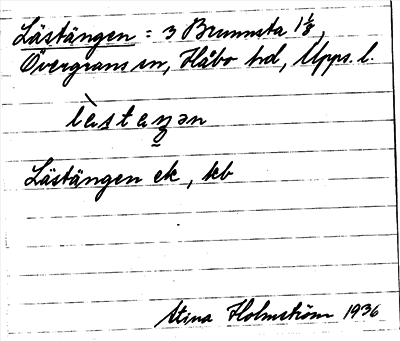 Lästängen : 3 Brunnsta 1 1/8,
Övergrans sn, Håbo hd, Upps. l.
Lästängen ek, kb
Stina Holmström 1936